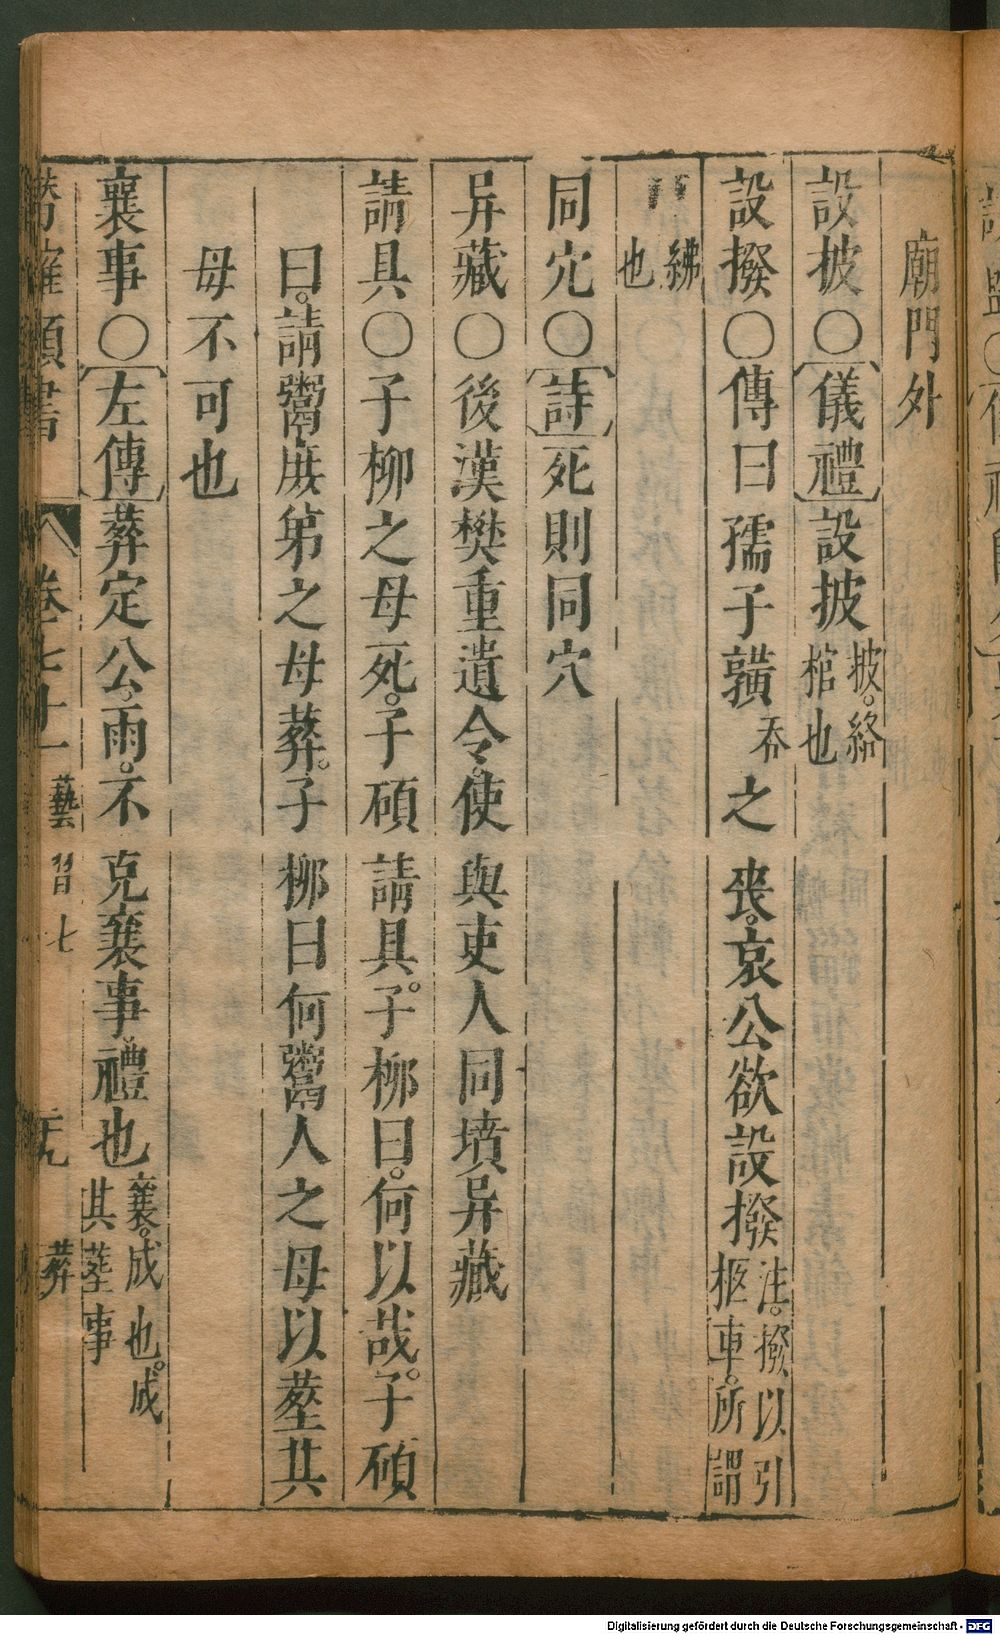 廟門外
設披○儀禮設披披。絡棺也
設撥○傳曰孺子𪏆吞之喪。哀公欲設撥注。撥以引柩車。所謂
紼也
同穴○詩死則同穴
异藏○後漢樊重遺令。使與吏人同墳异藏
請具○子柳之母死。子碩請具。子柳曰。何以哉。子碩
曰。請鬻庶弟之母葬。子柳曰何鬻人之母以塟其
母不可也
襄事○左傳葬定公。雨。不克襄事禮也襄。成也。成其塟事
卷七十一 藝習七 葬
Digitalisierung gefördert durch die Deutsche Forschungsgemeinschaft - DFG